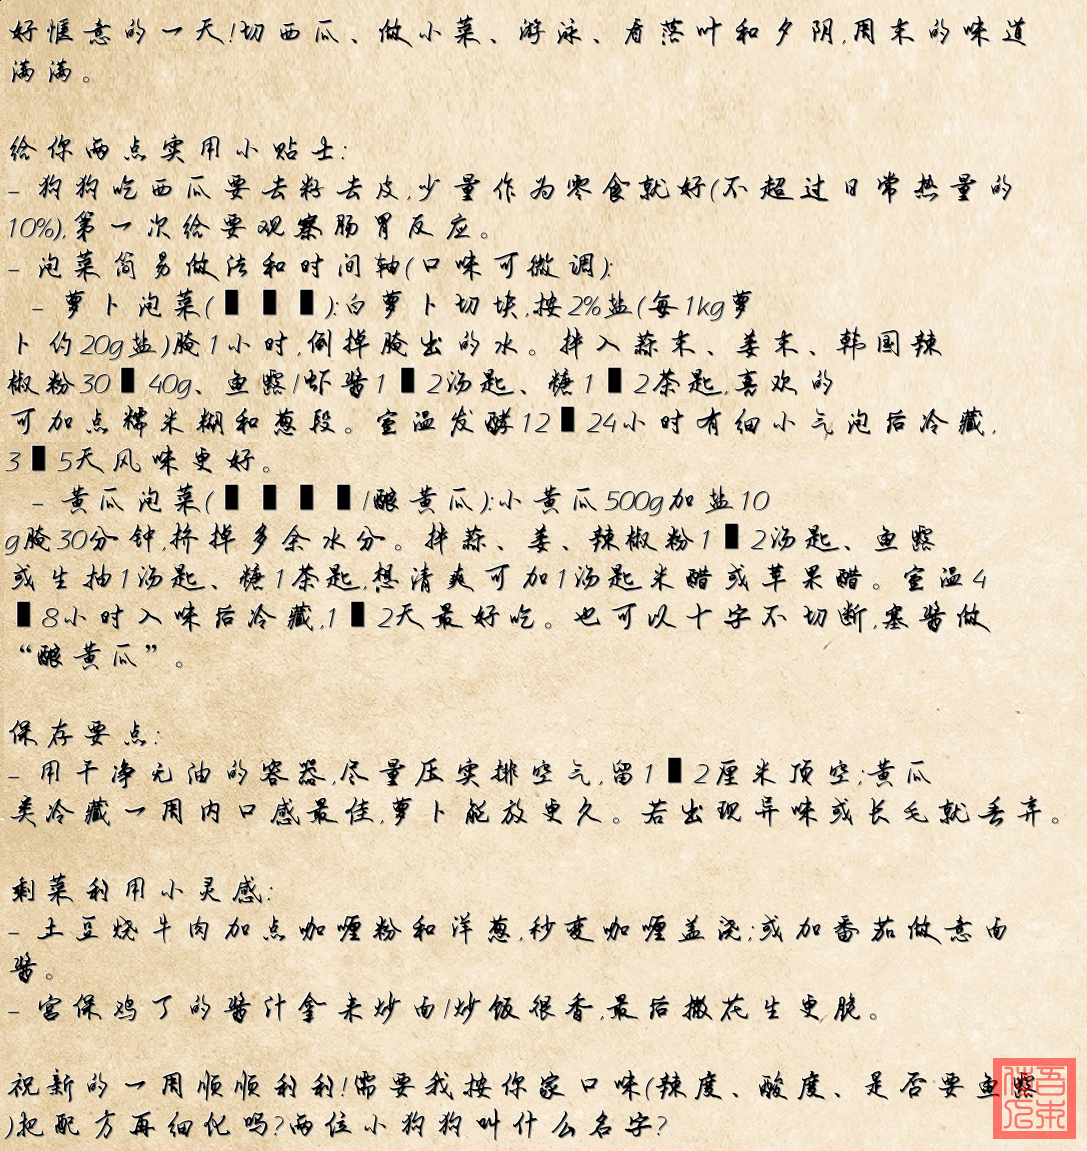 好惬意的一天!切西瓜、做小菜、游泳、看落叶和夕阴,周末的味道
满满。
给你两点实用小贴士:
- 狗狗吃西瓜要去籽去皮,少量作为零食就好(不超过日常热量的
10%),第一次给要观察肠胃反应。
- 泡菜简易做法和时间轴(口味可微调):
- 萝卜泡菜( ):白萝卜切块,按2%盐(每1kg萝
卜约20g盐)腌1小时,倒掉腌出的水。拌入蒜末、姜末、韩国辣
椒粉30 40g、鱼露/虾酱1 2汤匙、糖1 2茶匙,喜欢的
可加点糯米糊和葱段。室温发酵12 24小时有细小气泡后冷藏,
3 5天风味更好。
- 黄瓜泡菜( /酿黄瓜):小黄瓜500g加盐10
g腌30分钟,挤掉多余水分。拌蒜、姜、辣椒粉1 2汤匙、鱼露
或生抽1汤匙、糖1茶匙,想清爽可加1汤匙米醋或苹果醋。室温4
8小时入味后冷藏,1 2天最好吃。也可以十字不切断,塞酱做
“酿黄瓜”。
保存要点:
- 用干净无油的容器,尽量压实排空气,留1 2厘米顶空;黄瓜
类冷藏一周内口感最佳,萝卜能放更久。若出现异味或长毛就丢弃。
剩菜利用小灵感:
- 土豆烧牛肉加点咖喱粉和洋葱,秒变咖喱盖浇;或加番茄做意面
酱。
- 宫保鸡丁的酱汁拿来炒面/炒饭很香,最后撒花生更脆。
祝新的一周顺顺利利!需要我按你家口味(辣度、酸度、是否要鱼露
)把配方再细化吗?两位小狗狗叫什么名字?